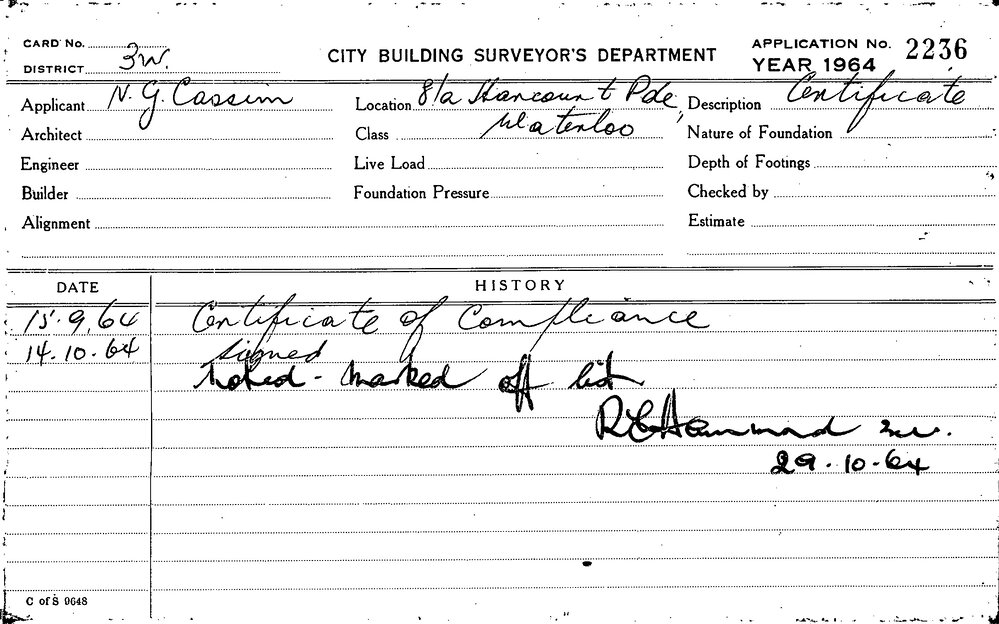 CARD No.
DISTRICT 3W.
CITY BUILDING SURVEYOR'S DEPARTMENT
APPLICATION No. 2236
YEAR 1964
Applicant N. G. Cassim
Location 8/a Harcourt Pde,
Description Certificate
Architect
Class Waterloo
Nature of Foundation
Engineer
Live Load
Depth of Footings
Builder
Foundation Pressure
Checked by
Alignment
Estimate
DATE HISTORY
15.9.64 Certificate of Compliance
14.10.64 signed
Noted - marked off list
29.10.64
C of S 9648